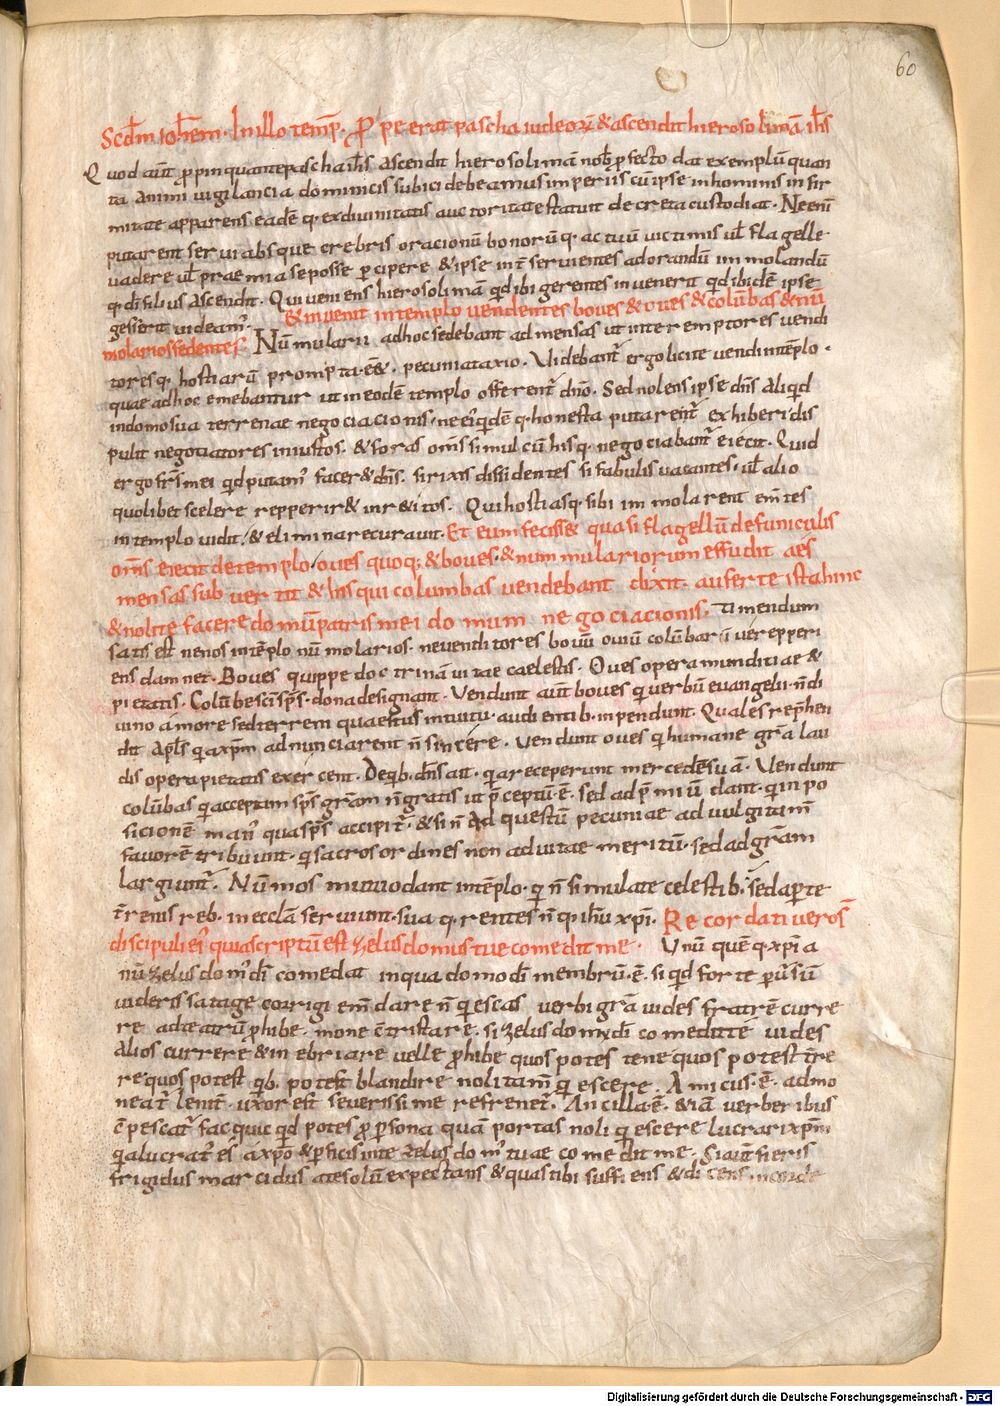 60
Scd̄m ioh̄em. In illo temp̄. Prope erat pascha iudeorꝝ & ascendit hierosolimā ih̄s
Quod aūt ꝓpinquante pascha ih̄s ascendit hierosolimā nob̄ ꝓfecto dat exemplū quan
ta animi vigilancia dominicis subici debeamus imperiis cū ipse in hominis infir
mitate apparens eadē q. ex divinitatis auctoritate statuit decreta custodiat. Ne enī
putarent servi absque crebris oracionū bonorū q. actuū victimis ul̄ flagella
vadere ul̄ praemia se posse ꝑcipere & ipse int̄ servientes ad orandū immolandū
q. di filius ascendit. Qui veniens hierosolimā qd ibi gerentes invenerit qd ibidē ipse
gesserit videam̄.
& invenit in templo vendentes boves & oves & colūbas & nū
molarios sedentes. Nūmularii adhoc sedebant ad mensas ut inter emptores vendi
tores q. hostiarū prompta eēt pecunia taxio. Videbant̄ ergo licite vendi in tēplo.
quae adhoc emebantur ut in eodē templo offerent̄ dn̄o. Sed nolens ipse dn̄s aliqd
in domo sua terrenae negociacionis. ne ei qdē q. honesta putarent̄ exhiberi dis
pulit negotiatores iniustos. & foras om̄s simul cū his q. negociabant̄ eiecit. Quid
ergo fr̄s mei qd putam̄ facer& dn̄s. si rixis dissidentes si fabulis vacantes. ul̄ alio
quolibet scelere repperir& inr&itos. Qui hostias q. sibi immolarent em̄tes
in templo vidit. & eliminare curavit. Et cum fecisset quasi flagellū de funiculis
om̄s eiecit de templo / oves quoq; & boves. & nummulariorum effudit aes
mensas subvertit & his qui columbas vendebant dixit. auferte ista hinc
& nolite facere domū patris mei domum negociacionis. Timendum
satis est ne nos in tēplo nūmolarios. ne venditores boum oviū colūbarū ve repperi
ens damnet. Boves quippe doctrinā vitae caelestis. Oves opera munditiae &
pietatis. Colūbe sc̄i sp̄s. dona designant. Vendunt aūt boves q verbū evangelii. n̄ di
vino amore sed terreni quaestus intuitu. audientib. inpendunt. Quales rep̄hen
dit apl̄s q a xpm adnunciarent n̄ sincere. Vendunt oves q humane gr̄a lau
dis opera pietatis exercent. De qb. dn̄s ait. q a receperunt mercedē suā. Vendunt
colūbas q acceptam sp̄s gr̄am n̄ gratis ut p̄ceptū ē. sed ad p̄miū dant. q inpo
sicionē man̄ qua sp̄s accipit̄. & si n̄ ad questū pecuniae ad vulgi tam̄
favorē tribuunt. q sacros ordines non ad vitae meritū. sed ad gr̄am
largiunt̄. Nūmos mutuo dant in tēplo. q n̄ simulate celestib. sed aperte
tr̄enis reb. in ecclā serviunt. sua q.rentes n̄ q ih̄u xpi. Recordati vero s̄
discipuli ei' quia scriptū est zelus domus tue comedit me. Unū quēq. xp̄ia
nū zelus dom' dī comedat in qua domo dī membrū. ē. si qd forte ꝑversū
videris satage corrigi emdare n̄ q escas verbi grā vides fratrē curre
re ad teatrū ꝓhibe. mone ctristare. si zelus dom' di comedit te vides
alios currere & inebriare velle ꝓhibe quos potes tene quos potest tr̄re
re quos potest qb. potest blandire noli tam̄ q escere. Amicus. ē. admo
neat̄ lenit̄. uxor est severissime refrenet̄. Ancilla ē. & iā verberibus
cōpescat̄ fac quic qd potes ꝓ ꝑsona quā portas noli q escere lucrari xpm
q a lucrat̄ es a xpo & ꝑficis in te zelus dom' tuae comedit me. Si aūt fieris
frigidus marcidus ate solū expectans & quasi tibi sufficiens & dicens